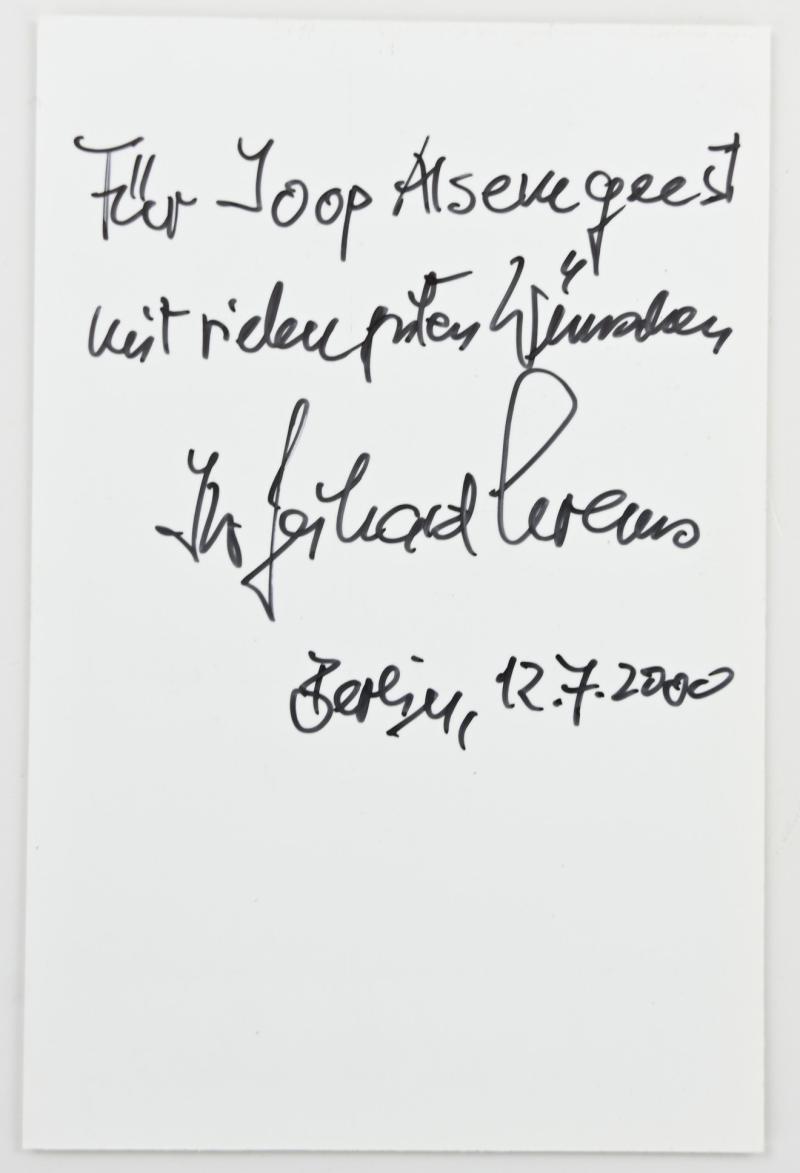 Für Joop Alsemgeest
mit vielen guten Wünschen
Ihr Gerhard
Berlin, 12.7.2000